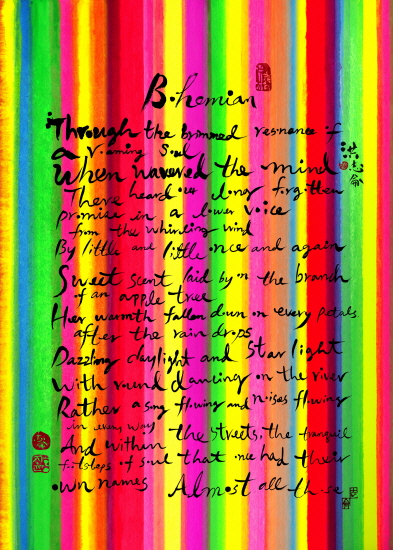 Bohemian
Through the brimmed resonance of
a roaming soul
When wavered the mind
There heard our long forgotten
promise in a lower voice
from the whirling wind
By little and little once and again
Sweet scent laid by on the branch
of an apple tree
Her warmth fallen down on every petals
after the rain drops
Dazzling daylight and Star light
With round dancing on the river
Rather a song flowing and noises flowing
in every way
And within the streets, the tranquil
footsteps of soul that once had their
own names Almost all these
洪志侖